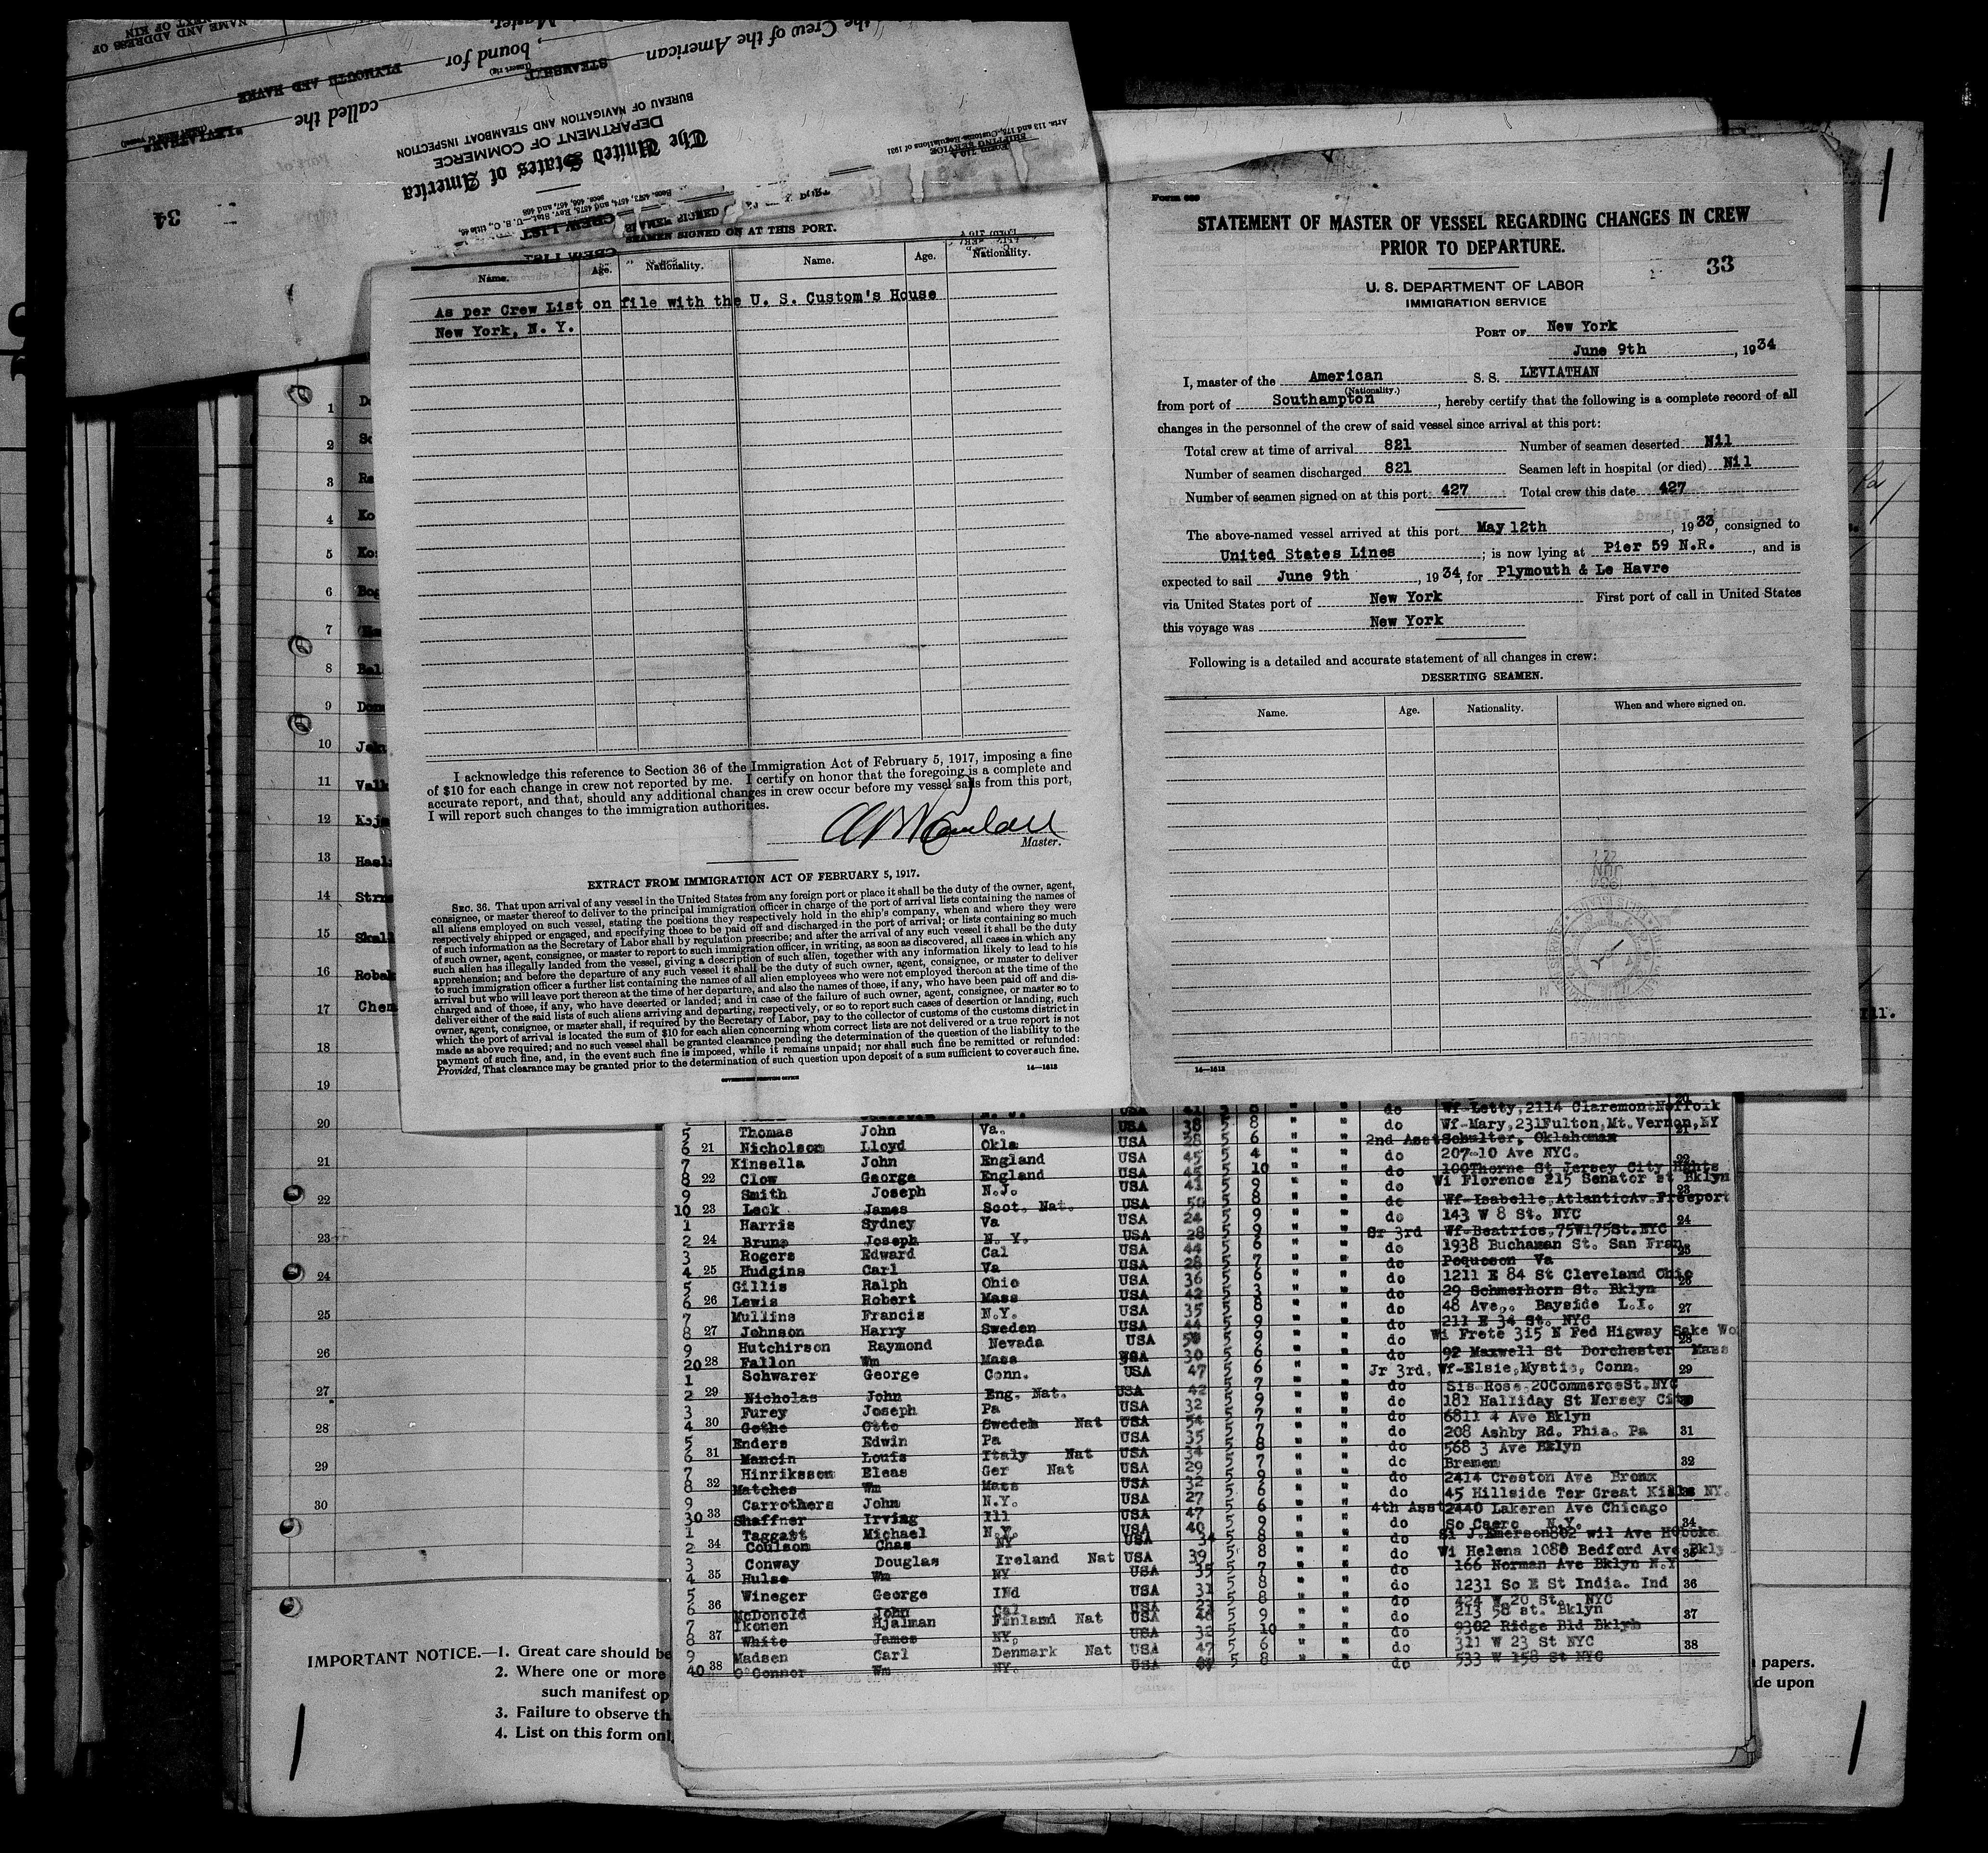 NAME AND ADDRESS OF
NEXT OF KIN
the Crew of the American STEAMSHIP
Master, bound for PLYMOUTH AND HAVRE
called the "LEVIATHAN"
34
The United States of America
DEPARTMENT OF COMMERCE
BUREAU OF NAVIGATION AND STEAMBOAT INSPECTION
SHIPPING SERVICE
Arts. 113 and 175, Customs Regulations of 1931
CREW LIST
SEAMEN SIGNED ON AT THIS PORT.
Name. Age. Nationality. Name. Age. Nationality.
As per Crew List on file with the U. S. Custom's House
New York, N. Y.
I acknowledge this reference to Section 36 of the Immigration Act of February 5, 1917, imposing a fine
of $10 for each change in crew not reported by me. I certify on honor that the foregoing is a complete and
accurate report, and that, should any additional changes in crew occur before my vessel sails from this port,
I will report such changes to the immigration authorities.
Master.
EXTRACT FROM IMMIGRATION ACT OF FEBRUARY 5, 1917.
SEC. 36. That upon arrival of any vessel in the United States from any foreign port or place it shall be the duty of the owner, agent,
consignee, or master thereof to deliver to the principal immigration officer in charge of the port of arrival lists containing the names of
all aliens employed on such vessel, stating the positions they respectively hold in the ship's company, when and where they were
respectively shipped or engaged, and specifying those to be paid off and discharged in the port of arrival; or lists containing so much
of such information as the Secretary of Labor shall by regulation prescribe; and after the arrival of any such vessel it shall be the duty
of such owner, agent, consignee, or master to report to such immigration officer, in writing, as soon as discovered, all cases in which any
such alien has illegally landed from the vessel, giving a description of such alien, together with any information likely to lead to his
apprehension; and before the departure of any such vessel it shall be the duty of such owner, agent, consignee, or master to deliver
to such immigration officer a further list containing the names of all alien employees who were not employed thereon at the time of the
arrival but who will leave port thereon at the time of her departure, and also the names of those, if any, who have been paid off and dis-
charged and of those, if any, who have deserted or landed; and in case of the failure of such owner, agent, consignee, or master so to
deliver either of the said lists of such aliens arriving and departing, respectively, or so to report such cases of desertion or landing, such
owner, agent, consignee, or master shall, if required by the Secretary of Labor, pay to the collector of customs of the customs district in
which the port of arrival is located the sum of $10 for each alien concerning whom correct lists are not delivered or a true report is not
made as above required; and no such vessel shall be granted clearance pending the determination of the question of the liability to the
payment of such fine, and, in the event such fine is imposed, while it remains unpaid; nor shall such fine be remitted or refunded:
Provided, That clearance may be granted prior to the determination of such question upon deposit of a sum sufficient to cover such fine.
GOVERNMENT PRINTING OFFICE 14—1618
Form 689
STATEMENT OF MASTER OF VESSEL REGARDING CHANGES IN CREW
PRIOR TO DEPARTURE.
33
U. S. DEPARTMENT OF LABOR
IMMIGRATION SERVICE
PORT OF New York
June 9th, 1934
I, master of the American S. S. LEVIATHAN
(Nationality.)
from port of Southampton, hereby certify that the following is a complete record of all
changes in the personnel of the crew of said vessel since arrival at this port:
Total crew at time of arrival 821 Number of seamen deserted Nil
Number of seamen discharged 821 Seamen left in hospital (or died) Nil
Number of seamen signed on at this port 427 Total crew this date 427
The above-named vessel arrived at this port May 12th, 1933, consigned to
United States Lines; is now lying at Pier 59 N.R., and is
expected to sail June 9th, 1934, for Plymouth & Le Havre
via United States port of New York First port of call in United States
this voyage was New York
Following is a detailed and accurate statement of all changes in crew:
DESERTING SEAMEN.
Name. Age. Nationality. When and where signed on.
14—1618
1
2
3
4 Ko
5 Kos
6 Bog
7
8 Bal
9 Dom
10
11 Valk
12 Koja
13 Hasl
14 Strn
15 Skal
16 Robak
17 Chem
18
19
20
21
22
23
24
25
26
27
28
29
30
Ill.
41 5 8 " " do Wf-Letty, 2114 Claremont Norfolk
5 Thomas John Va. USA 38 5 8 " " do Wf-Mary, 231Fulton, Mt. Vernon, NY
6 21 Nicholson Lloyd Okla USA 28 5 6 " " 2nd Asst Schulter, Oklahoman
7 Kinsella John England USA 45 5 4 " " do 207-10 Ave NYC.
8 22 Clow George England USA 45 5 10 " " do 100Thorne St Jersey City Hghts
9 Smith Joseph N.J. USA 41 5 9 " " do Wi Florence 215 Senator st Bklyn
10 23 Leck James Scot. Nat. USA 50 5 8 " " do Wf-Isabelle, AtlanticAv. Freeport
1 Harris Sydney Va USA 24 5 9 " " do 143 W 8 St. NYC
2 24 Bruno Joseph N. Y. USA 28 5 9 " " Sr 3rd Wf-Beatrice, 75W175St. NYC
3 Rogers Edward Cal USA 44 5 6 " " do 1938 Buchanan St. San Fran
4 25 Hudgins Carl Va USA 28 5 7 " " do Poquoson Va
5 Gillis Ralph Ohio USA 36 5 6 " " do 1211 E 84 St Cleveland Ohio
6 26 Lewis Robert Mass USA 42 5 3 " " do 29 Schmerhorn St. Bklyn
7 Mullins Francis N.Y. USA 35 5 8 " " do 48 Ave., Bayside L.I.
8 27 Johnson Harry Sweden USA 44 5 9 " " do 211 E 34 St. NYC
9 Hutchirson Raymond Nevada USA 5 9 " " do Wi Frete 315 N Fed Higway Sake Wo
20 28 Fallon Wm Mass USA 30 5 6 " " do 92 Maxwell St Dorchester Mass
1 Schwarer George Conn. USA 47 5 6 " " Jr 3rd. Wf-Elsie, Mystic, Conn.
2 29 Nicholas John Eng. Nat. USA 42 5 7 " " do Sis Rose, 20CommerceSt. NYC
3 Furey Joseph Pa USA 32 5 9 " " do 181 Halliday St Nersey City
4 30 Gothe Otto Sweden Nat USA 54 5 7 " " do 6811 4 Ave Bklyn
5 Enders Edwin Pa USA 35 5 7 " " do 208 Ashby Rd. Phia. Pa
6 31 Mancin Louis Italy Nat USA 34 5 8 " " do 568 3 Ave Bklyn
7 Hinriksson Eleas Ger Nat USA 29 5 7 " " do Bremen
8 32 Matches Wm Mass USA 32 5 9 " " do 2414 Creston Ave Bronx
9 Carrothers John N.Y. USA 27 5 6 " " do 45 Hillside Ter Great Kills NY.
30 33 Shaffner Irving Ill USA 47 5 6 " " 4th Asst 2440 Lakeren Ave Chicago
1 Taggatt Michael N.Y. USA 40 5 9 " " do So Caero N.Y.
2 34 Coulson Chas NY USA 34 5 8 " " do Si J.Emerson862 wil Ave Hoboke
3 Conway Douglas Ireland Nat USA 39 5 8 " " do Wi Helena 1080 Bedford Ave Bkly
4 35 Hulse Wm NY USA 35 5 7 " " do 166 Norman Ave Bklyn N.Y
5 Wineger George INd USA 31 5 8 " " do 1231 So E St India. Ind
6 36 McDonold John Cal USA 23 5 8 " " do 424 W 20 St. NYC
7 Ikonen Hjalman Finland Nat USA 40 5 9 " " do 213 58 st. Bklyn
8 37 White James NY. USA 32 5 10 " " do 9302 Ridge Bld Bklyn
9 Madsen Carl Denmark Nat USA 47 5 6 " " do 311 W 23 St NYC
40 38 O'Connor Wm NY. USA 5 8 " " do 533 W 158 St NYC
IMPORTANT NOTICE.—1. Great care should be
2. Where one or more
such manifest op
3. Failure to observe th
4. List on this form onl
papers.
de upon